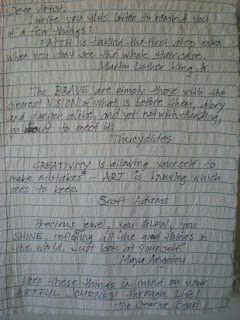 Dear Artist,
I write you this letter to remind you
of a few things:
FAITH is taking the first step even
when you don't see the whole staircase.
Martin Luther King, Jr.
The BRAVE are simply those with the
clearest VISION of what is before them, glory
and danger alike, and yet notwithstanding,
go out to meet it.
Thucydides
CREATIVITY is allowing yourself to
make mistakes - ART is knowing which
ones to keep.
Scott Adams
Precious jewel, you GLOW, you
SHINE, reflecting all the good things in
the world. Just look at yourself.
Maya Angelou
Keep these things in mind on your
ARTFUL JOURNEY through LIFE!
The Creative Beast